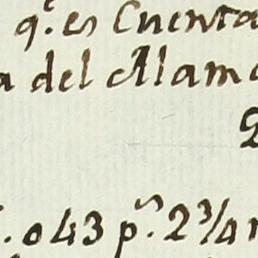 q.e es Cuenta
a del Alamo
2
. 043 p.s 2 3/4 r